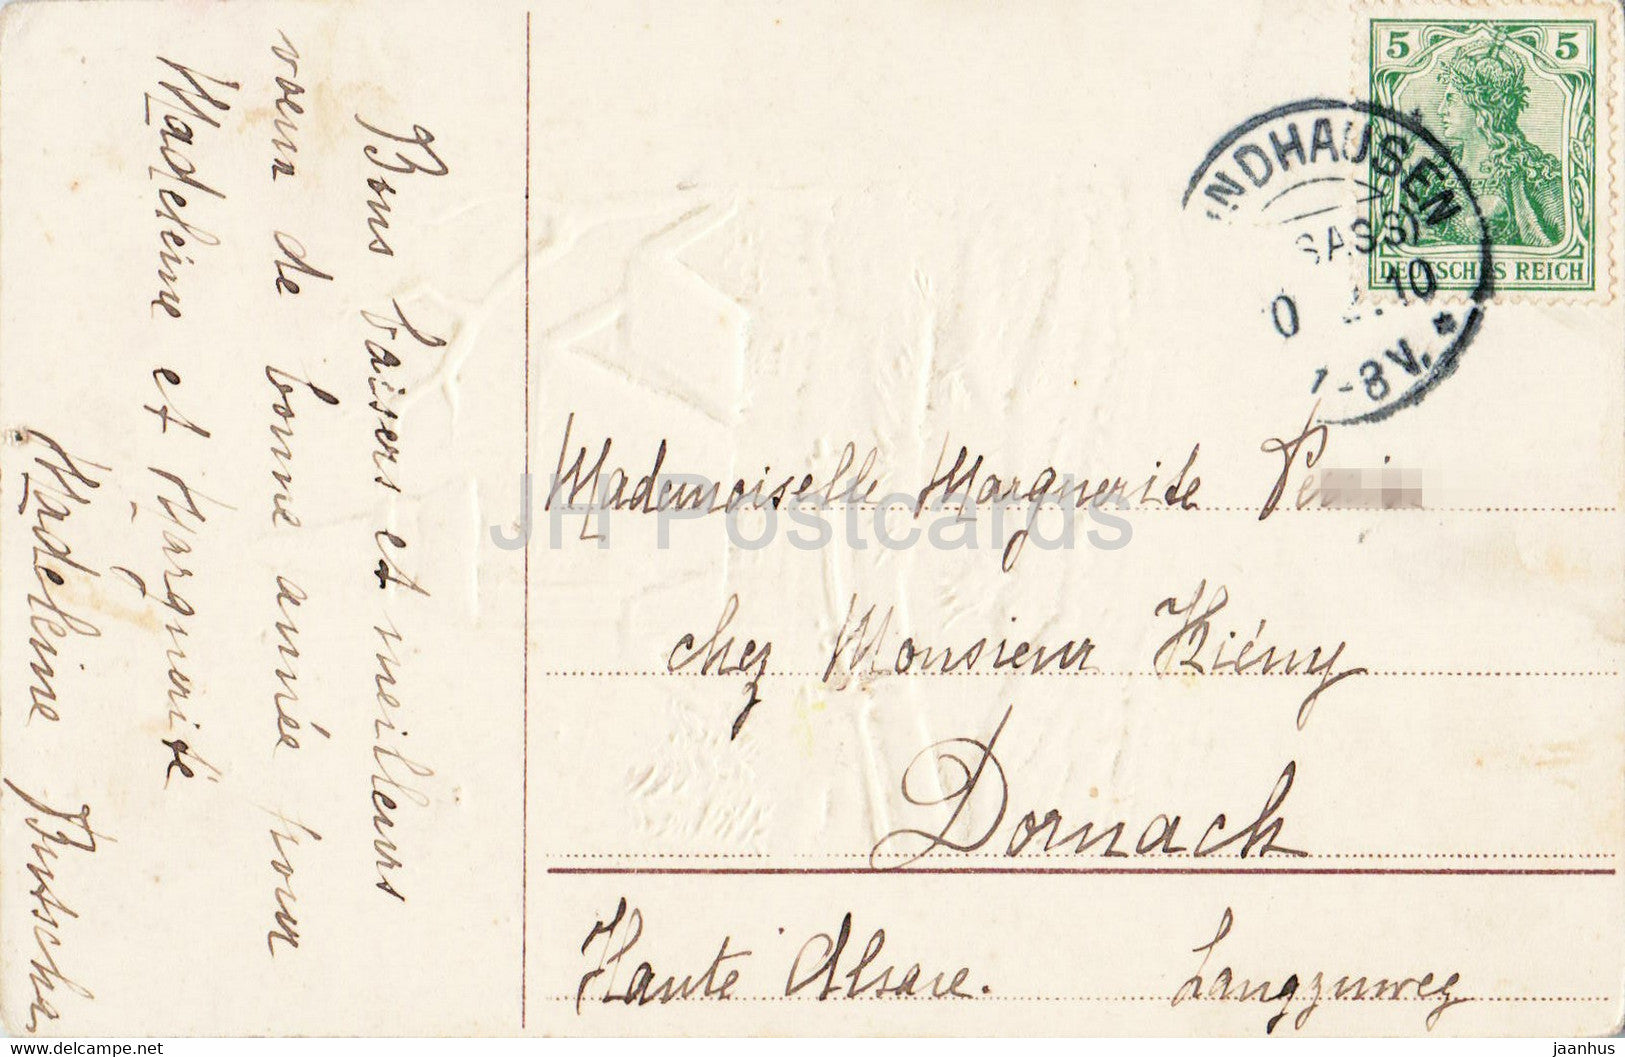 Bons baisers et meilleurs
voeux de bonne année pour
Madeleine et Marguerite
Madeleine
5 5
DEUTSCHES REICH
NDHAUSEN
SASS)
10
-8 V.
Mademoiselle Marguerite
chez Monsieur Kiény
Dornach
Haute Alsace. Langzugweg
JH Postcards
delcampe.net
jaanhus